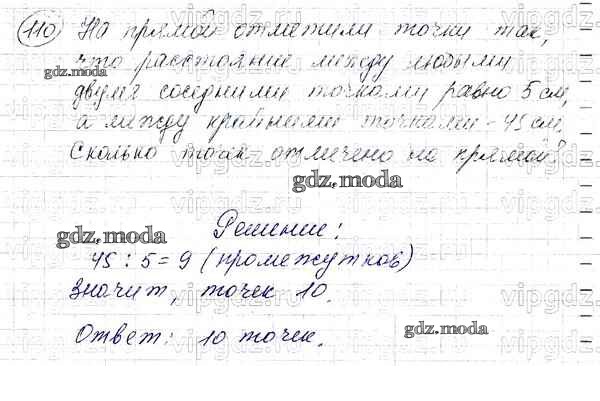 110 На прямой отметили точки так,
что расстояние между любыми
gdz.moda
двумя соседними точками равно 5 см,
а между крайними точками - 45 см.
Сколько точек отмечено на прямой?
gdz.moda
Решение:
gdz.moda
45 : 5 = 9 (промежутков)
Значит, точек 10.
Ответ: 10 точек.
gdz.moda